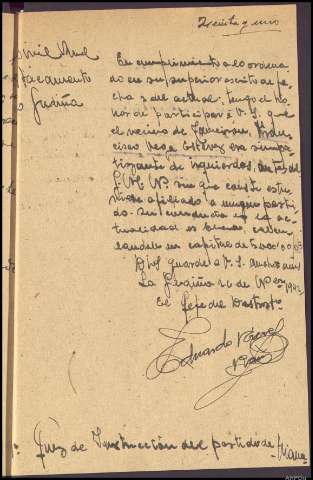 Treinta y uno
En cumplimiento a lo ordena-
do en su superior escrito de fe-
cha 2 del actual, tengo el ho-
nor de participar a V. S. que
el vecino de
Vega Estévez era simpa-
tizante de izquierdas, antes del
G. M. N. sin que conste estu-
viese afiliado a ningún parti-
do. Su conducta en la ac-
tualidad es buena, calcu-
landole un capital de 5.000
Dios guarde a V. S. muchos años
La Gudiña 26 de
El Jefe del Destacto.
Eduardo
Juez de Instrucción del partido de Viana
Gudiña